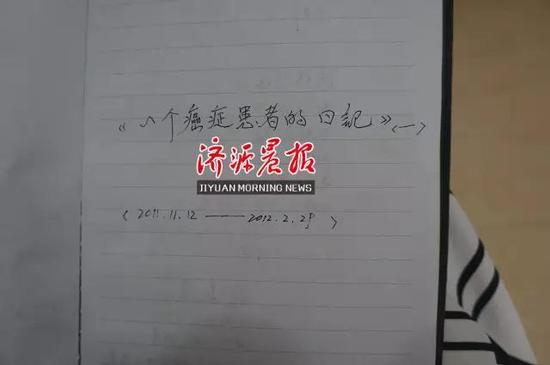 《一个癌症患者的日記》<一>
济源晨报
JIYUAN MORNING NEWS
< 2011.11.12 —— 2012.2.29 >